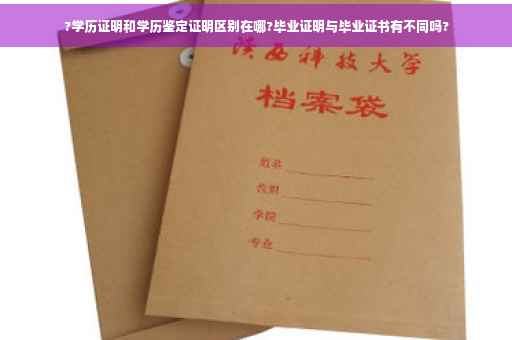 ?学历证明和学历鉴定证明区别在哪?毕业证明与毕业证书有不同吗?
陕西科技大学
档案袋
姓名
学院
专业